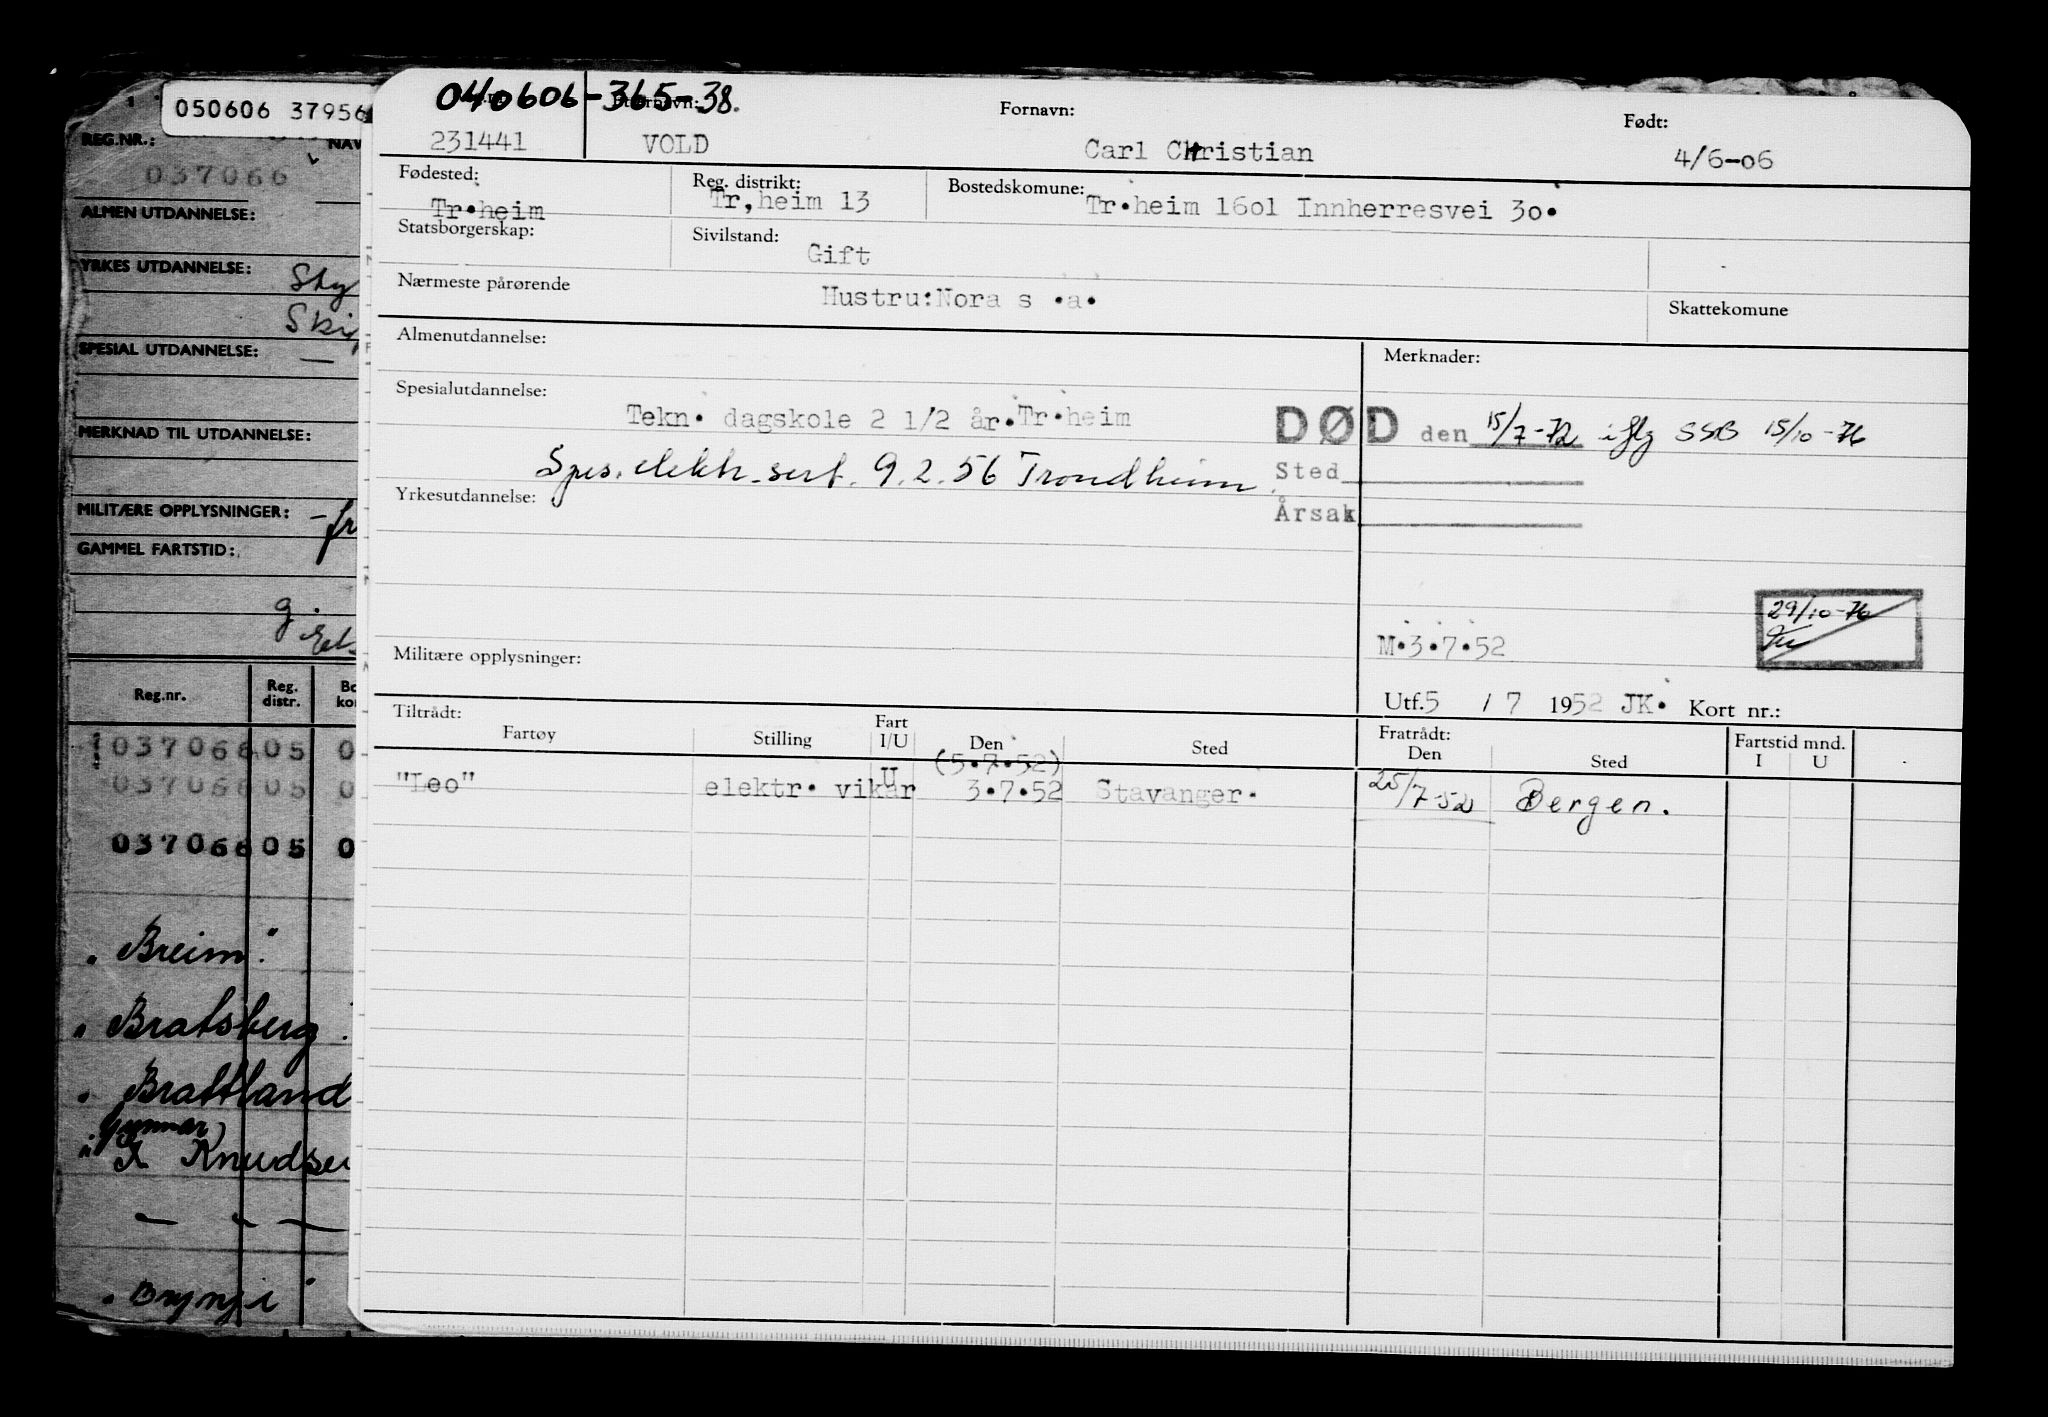 050606 37956
REG.NR.: NAV
037066
ALMEN UTDANNELSE:
YRKES UTDANNELSE:
SPESIAL UTDANNELSE: —
MERKNAD TIL UTDANNELSE:
MILITÆRE OPPLYSNINGER:
GAMMEL FARTSTID:
Reg.nr. Reg. distr.
037066 05 0
037066 05 0
037066 05 0
"Breim"
"Bratsberg"
"Brattland
Gunnar
"K Knudsen
— " —
"Brynje"
040606-365-38.
231441 VOLD
Fornavn: Carl Christian
Født: 4/6-06
Fødested: Tr.heim
Reg. distrikt: Tr,heim 13
Bostedskomune: Tr.heim 16o1 Innherresvei 3o.
Statsborgerskap:
Sivilstand: Gift
Nærmeste pårørende Hustru:Nora s .a.
Skattekomune
Almenutdannelse:
Merknader:
Spesialutdannelse: Tekn. dagskole 2 1/2 år.Tr.heim
Spes. elektr. sert. 9.2.56 Trondheim
DØD den 15/7-72 iflg SSB 15/10-76
Sted
Årsak
Yrkesutdannelse:
29/10-76
M.3.7.52
Militære opplysninger:
Utf.5 / 7 1952 JK. Kort nr.:
Tiltrådt:
Fartøy Stilling Fart I/U Den Sted
Fratrådt:
Den Sted
Fartstid mnd.
I U
(5.7.52)
"Leo" elektr. vikar U 3.7.52 Stavanger. 25/7-52 Bergen.